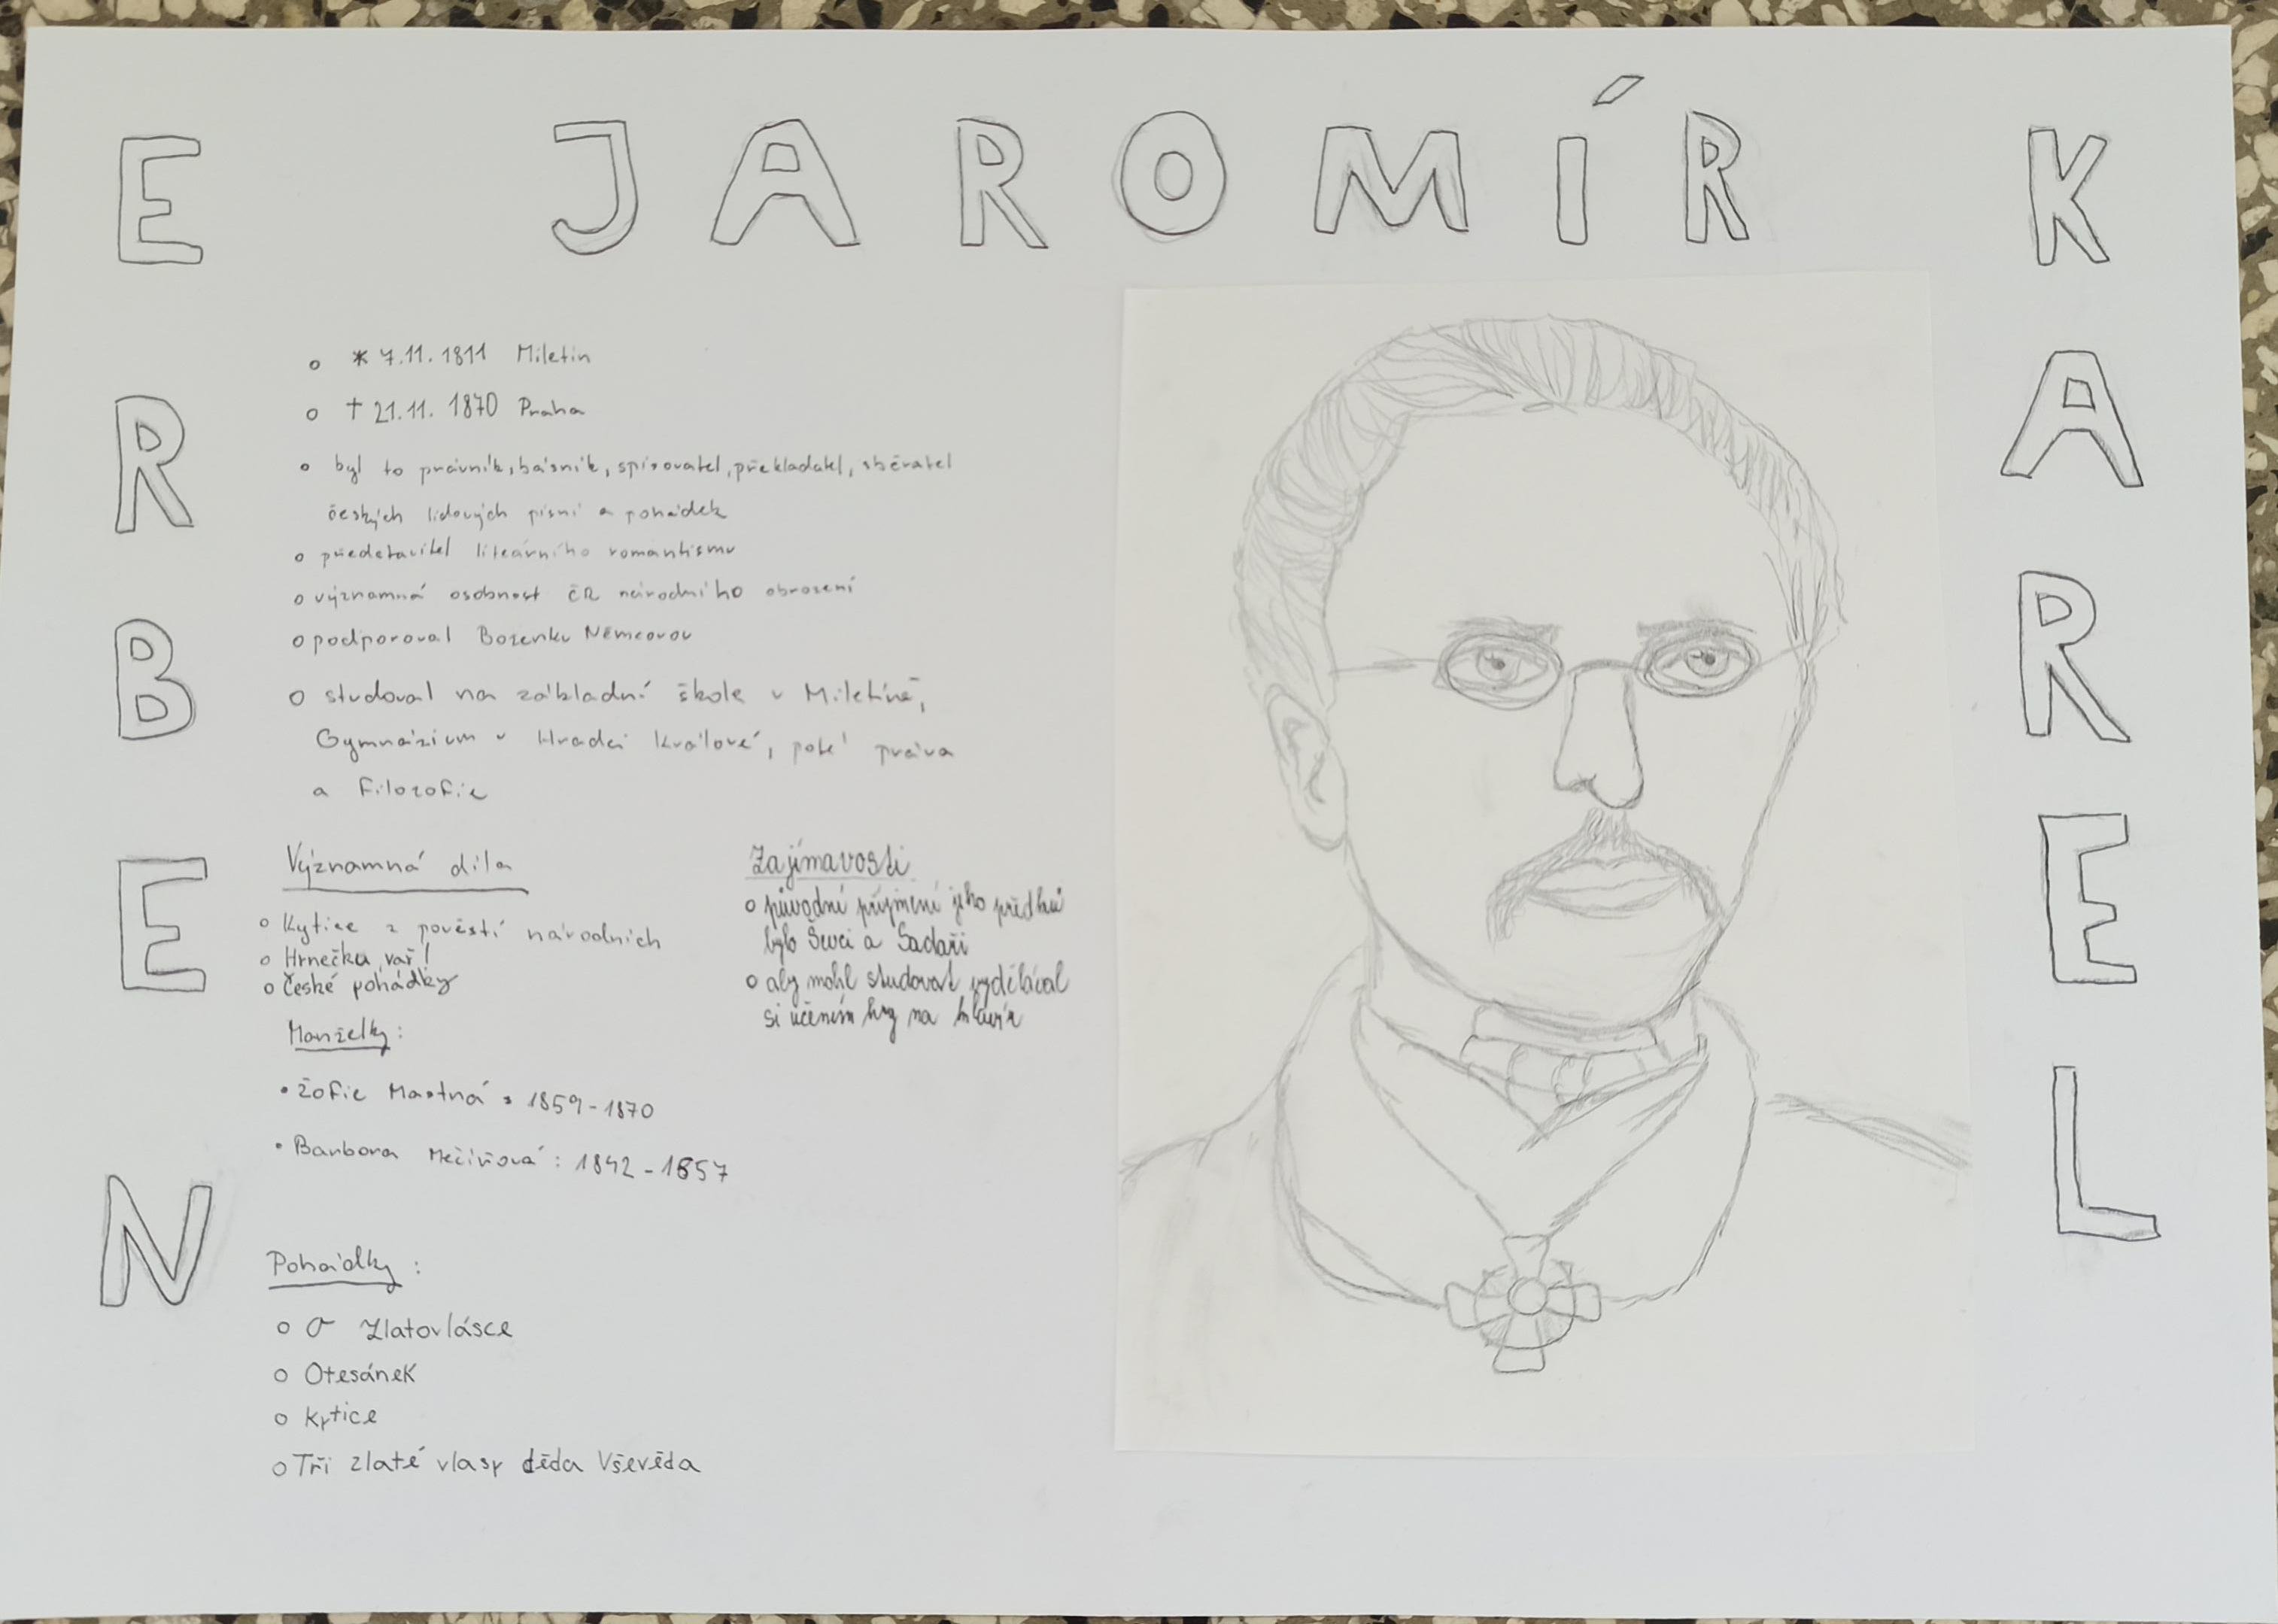 JAROMÍR
ERBEN
KAREL
* 7.11.1811 Miletín
† 21.11.1870 Praha
byl to právník, básník, spisovatel, překladatel, sběratel
českých lidových písní a pohádek
představitel literárního romantismu
významná osobnost ČR národního obrození
podporoval Boženku Němcovou
studoval na základní škole v Miletíně,
Gymnázium v Hradci Králové, poté práva
a Filozofie
Významná díla
Kytice z pověstí národních
Hrnečku, vař!
České pohádky
Zajímavosti
původní příjmení jeho předků
bylo Ševci a Sadaři
aby mohl studovat vydělával
si učením hry na klavír
Manželky:
Žofie Mastná: 1859-1870
Barbora Mečířová: 1842-1857
Pohádky:
O Zlatovlásce
Otesánek
Kytice
Tři zlaté vlasy děda Vševěda